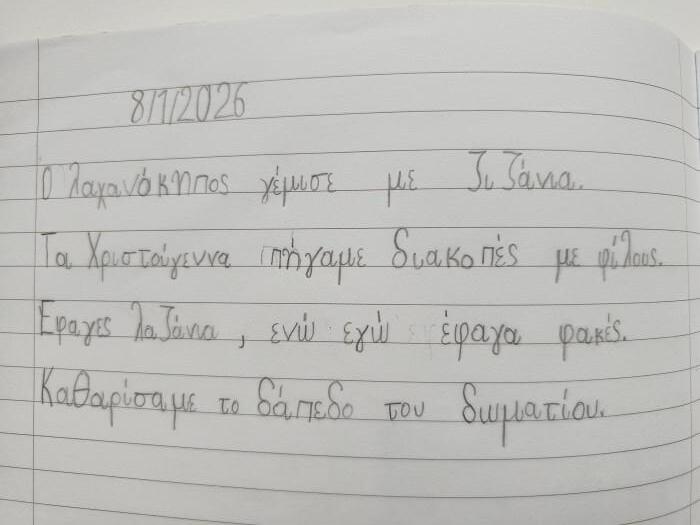 8/1/2026
Ο λαχανόκηπος γέμισε με ζιζάνια.
Τα Χριστούγεννα πήγαμε διακοπές με φίλους.
Έφαγες λαζάνια, ενώ εγώ έφαγα φακές.
Καθαρίσαμε το δάπεδο του δωματίου.